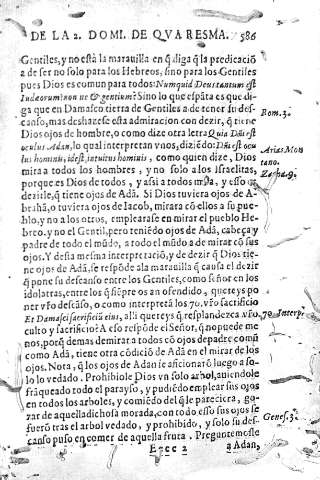 DE LA 2. DOMI. DE QVARESMA. 586
Gentiles, y no està la marauilla en q̃ diga q̃ la predicació
a de ser no solo para los Hebreos, sino para los Gentiles
pues Dios es comun para todos: Numquid Deus tantum est
Iudæorum: non ne & gentium? Sino lo que espãta es que di-
ga que en Damasco tierra de Gentiles a de tener su des-
canso, mas deshazese esta admiracion con dezir, q̃ tiene Rom. 3.
Dios ojos de hombre, o como dize otra letra Quia Dñi est
oculus Adam, lo qual interpretan vnos, diziẽdo: Dñi est ocu
lus hominis, id est, intuitus hominis, como quien dize, Dios Arias Mon
mira a todos los hombres, y no solo a los Israelitas, tano.
porque es Dios de todos, y assi a todos mira, y esso es Zach. 9.
dezirle, q̃ tiene ojos de Adã. Si Dios tuviera ojos de A-
brahã, o tuviera ojos de Iacob, mirára cõ ellos a su pue-
blo, y no a los otros, emplearase en mirar el pueblo He-
breo, y no el Gentil, pero teniẽdo ojos de Adã, cabeça y
padre de todo el mũdo, a todo el mũdo a de mirar cõ sus
ojos. Y desta mesma interpretació, y de dezir q̃ Dios tie-
ne ojos de Adã, se respõde a la marauilla q̃ causa el dezir
q̃ pone su descanso entre los Gentiles, como señor en los
idolatras, entre los q̃ siẽpre os an ofendido, quereys po
ner vřo descãso, o como interpretó los 70. vřo sacrificio
Et Damasci sacrificiũ eius, allí quereys q̃ resplandezca vřo 70. Interp
culto y sacrificio? A eso respõde el Señor, q̃ no puede me
nos, porq̃ demas de mirar a todos cõ ojos de padre comũ
como Adã, tiene otra cõdició de Adã en el mirar de los
ojos. Nota, q̃ los ojos de Adan se aficionarõ luego a so-
lo lo vedado. Prohibiole Dios vn solo arbol, auiendole
frãqueado todo el parayso, y pudiẽdo emplear sus ojos
en todos los arboles, y comiẽdo del q̃ le pareciera, go-
zar de aquella dichosa morada, con todo esso sus ojos se Genes. 3.
fuerõ tras el arbol vedado, y prohibido, y solo su des-
canso puso en comer de aquella fruta. Preguntemosle
Eeee 2 a Adan,